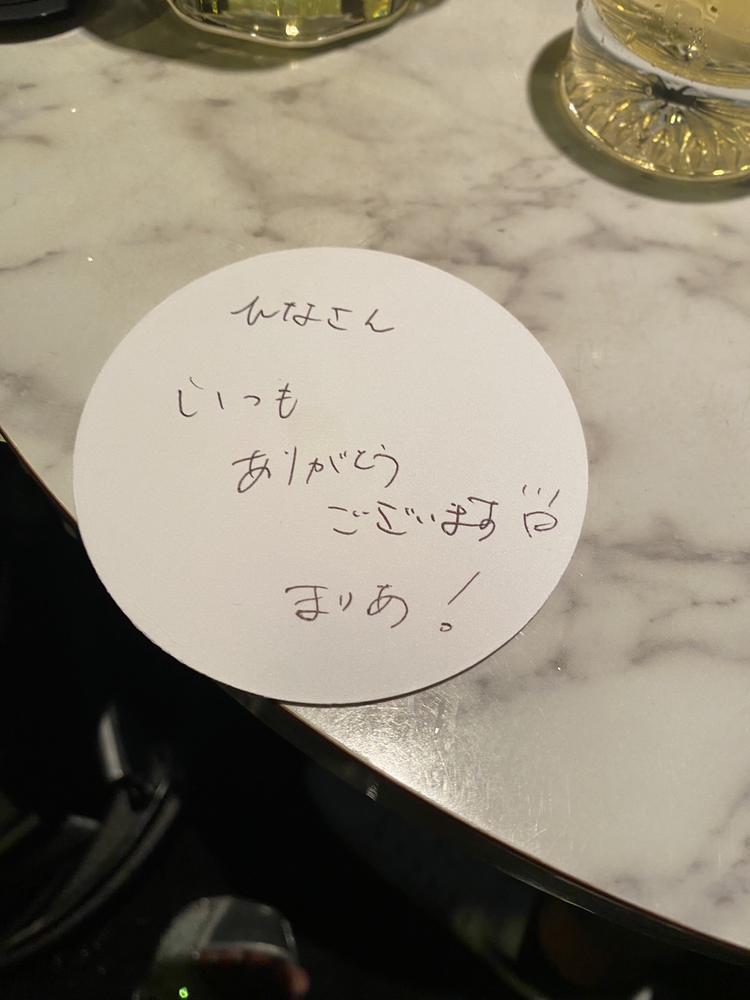 ひなさん
いつも
ありがとう
ございます
まりあ!